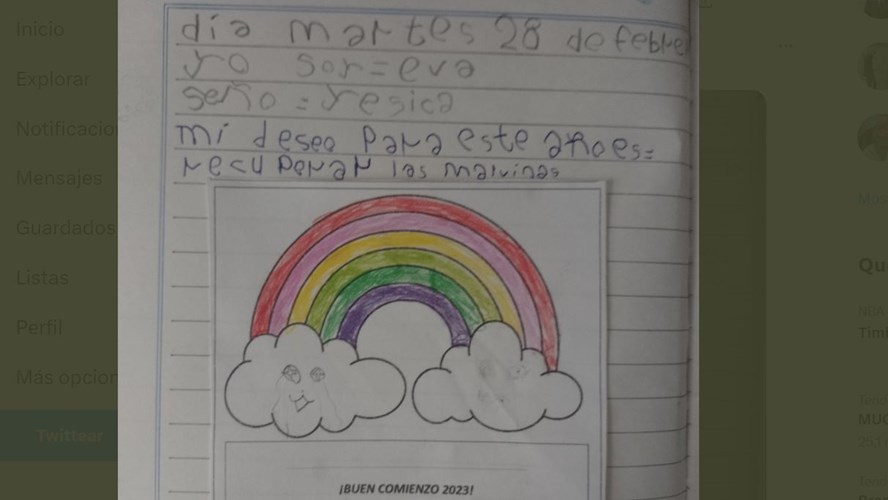 día martes 28 de febre
yo soy=eva
seño = yesica
mi deseo para este año es=
recuperar las malvinas
¡BUEN COMIENZO 2023!
Inicio
Explorar
Notificacio
Mensajes
Guardados
Listas
Perfil
Más opcion
Twittear
Qu
Tim
MUC